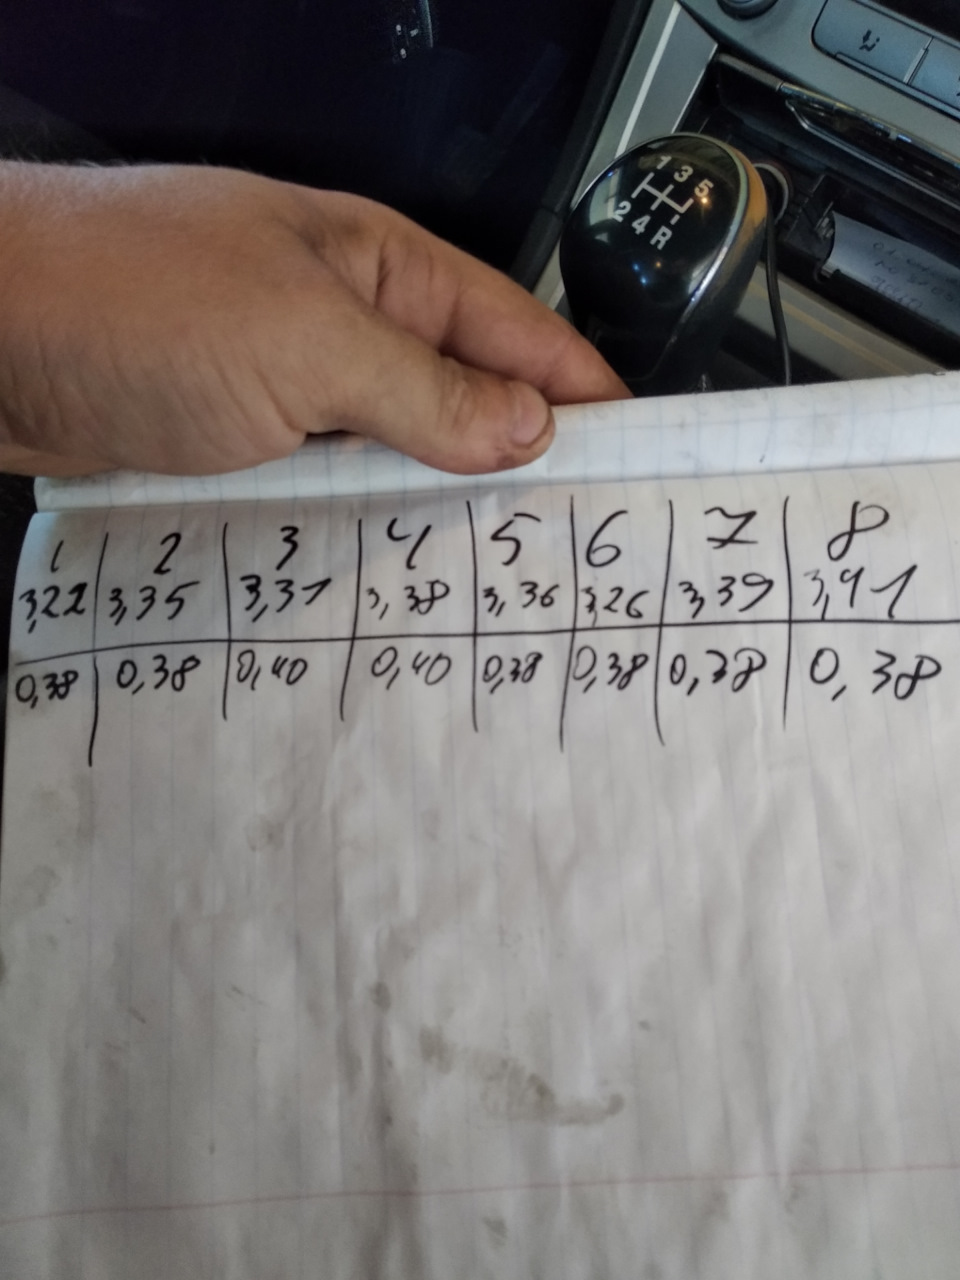 1 3 5
2 4 R
1 2 3 4 5 6 7 8
3,22 3,35 3,31 3,38 3,36 3,26 3,39 3,41
0,38 0,38 0,40 0,40 0,38 0,38 0,38 0,38